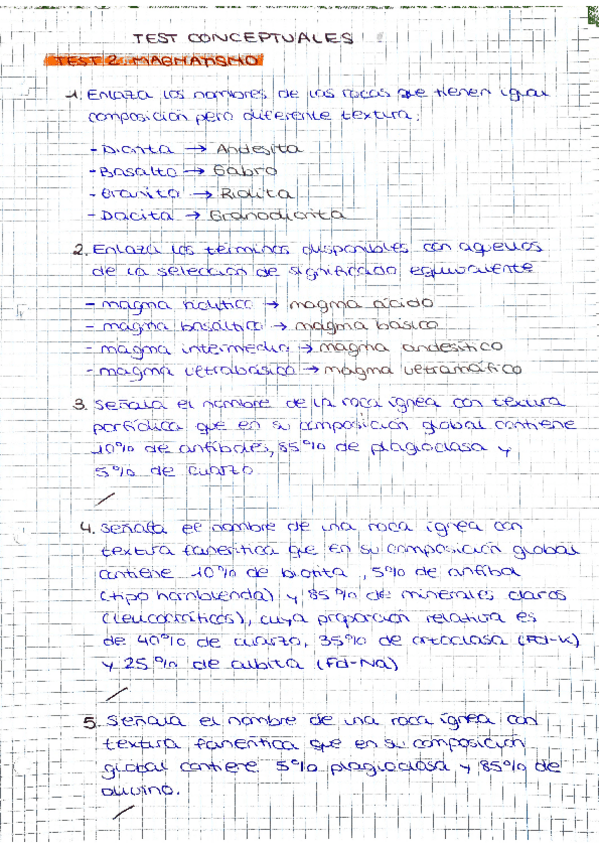 TEST CONCEPTUALES
TEST 2. MAGMATISMO
1. Enlaza los nombres de las rocas que tienen igual
composición pero diferente textura.
- Diorita → Andesita
- Basalto → Gabro
- Granito → Riolita
- Dacita → Granodiorita
2. Enlaza los términos disponibles con aquellos
de la selección de significado equivalente
- magma riolítico → magma ácido
- magma basáltico → magma básico
- magma intermedio → magma andesítico
- magma ultrabásico → magma ultramáfico
3. Señala el nombre de la roca ígnea con textura
porfídica que en su composición global contiene
10% de anfíboles, 85% de plagioclasa y
5% de cuarzo
4. Señala el nombre de una roca ígnea con
textura fanerítica que en su composición global
contiene 10% de biotita, 5% de anfíbol
(tipo hornblenda) y 85% de minerales claros
(leucocráticos), cuya proporción relativa es
de 40% de cuarzo, 35% de ortoclasa (Fd-K)
y 25% de albita (Fd-Na)
5. Señala el nombre de una roca ígnea con
textura fanerítica que en su composición
global contiene 5% plagioclasa y 85% de
olivino.